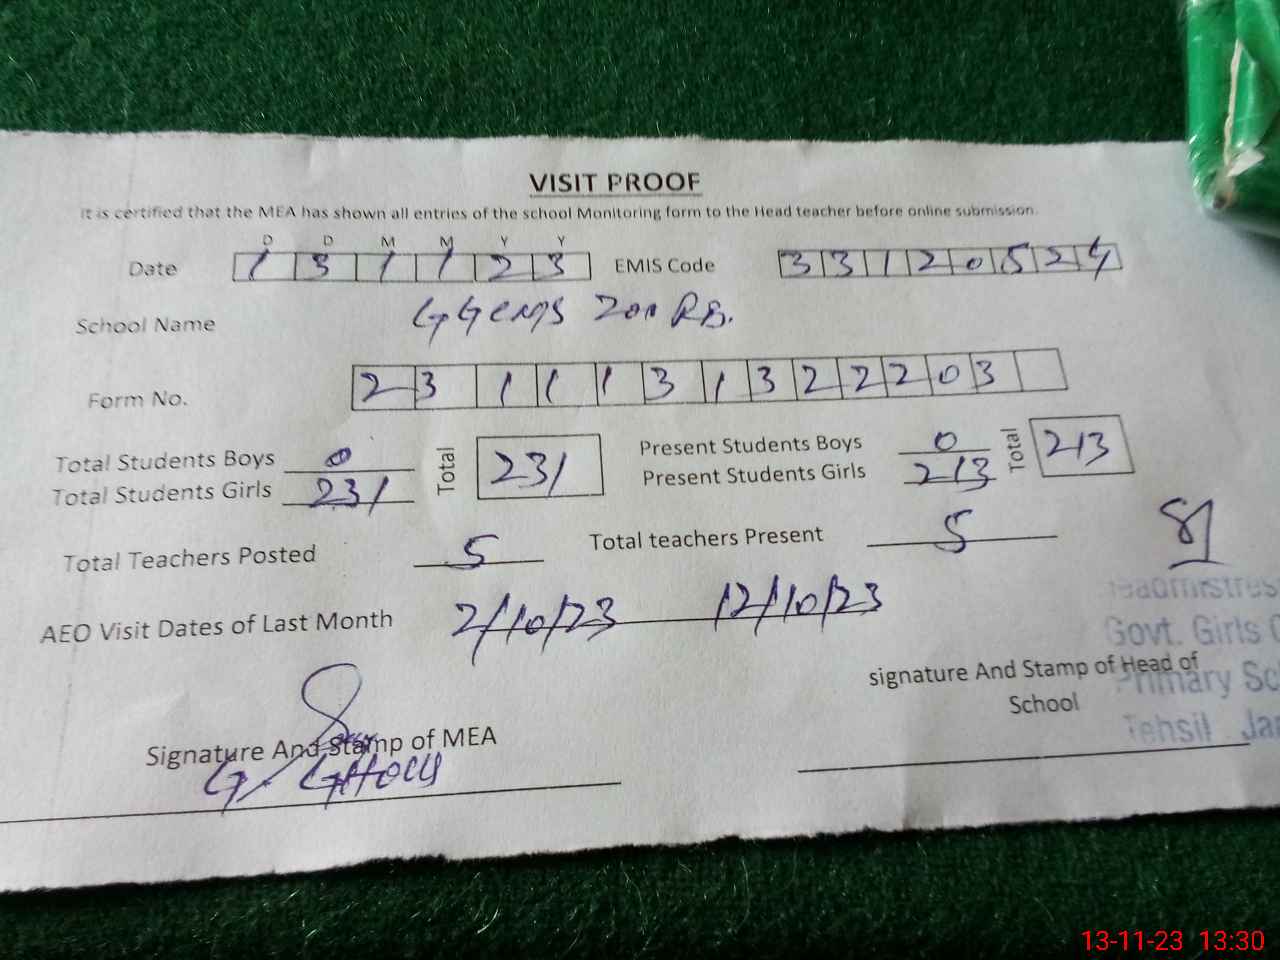 VISIT PROOF
It is certified that the MEA has shown all entries of the school Monitoring form to the Head teacher before online submission.
D D M M Y Y
Date 1 3 1 1 2 3 EMIS Code 3 3 1 2 0 5 2 4
School Name 200 RB.
Form No. 2 3 1 1 1 3 1 3 2 2 2 0 3
Total Students Boys 0 Total 231 Present Students Boys 0 Total 213
Total Students Girls 231 Present Students Girls 213
Total Teachers Posted 5 Total teachers Present 5
AEO Visit Dates of Last Month 2/10/23 12/10/23
Headmistres
Govt. Girls
Primary Sc
Tehsil Jar
signature And Stamp of Head of
School
Signature And Stamp of MEA